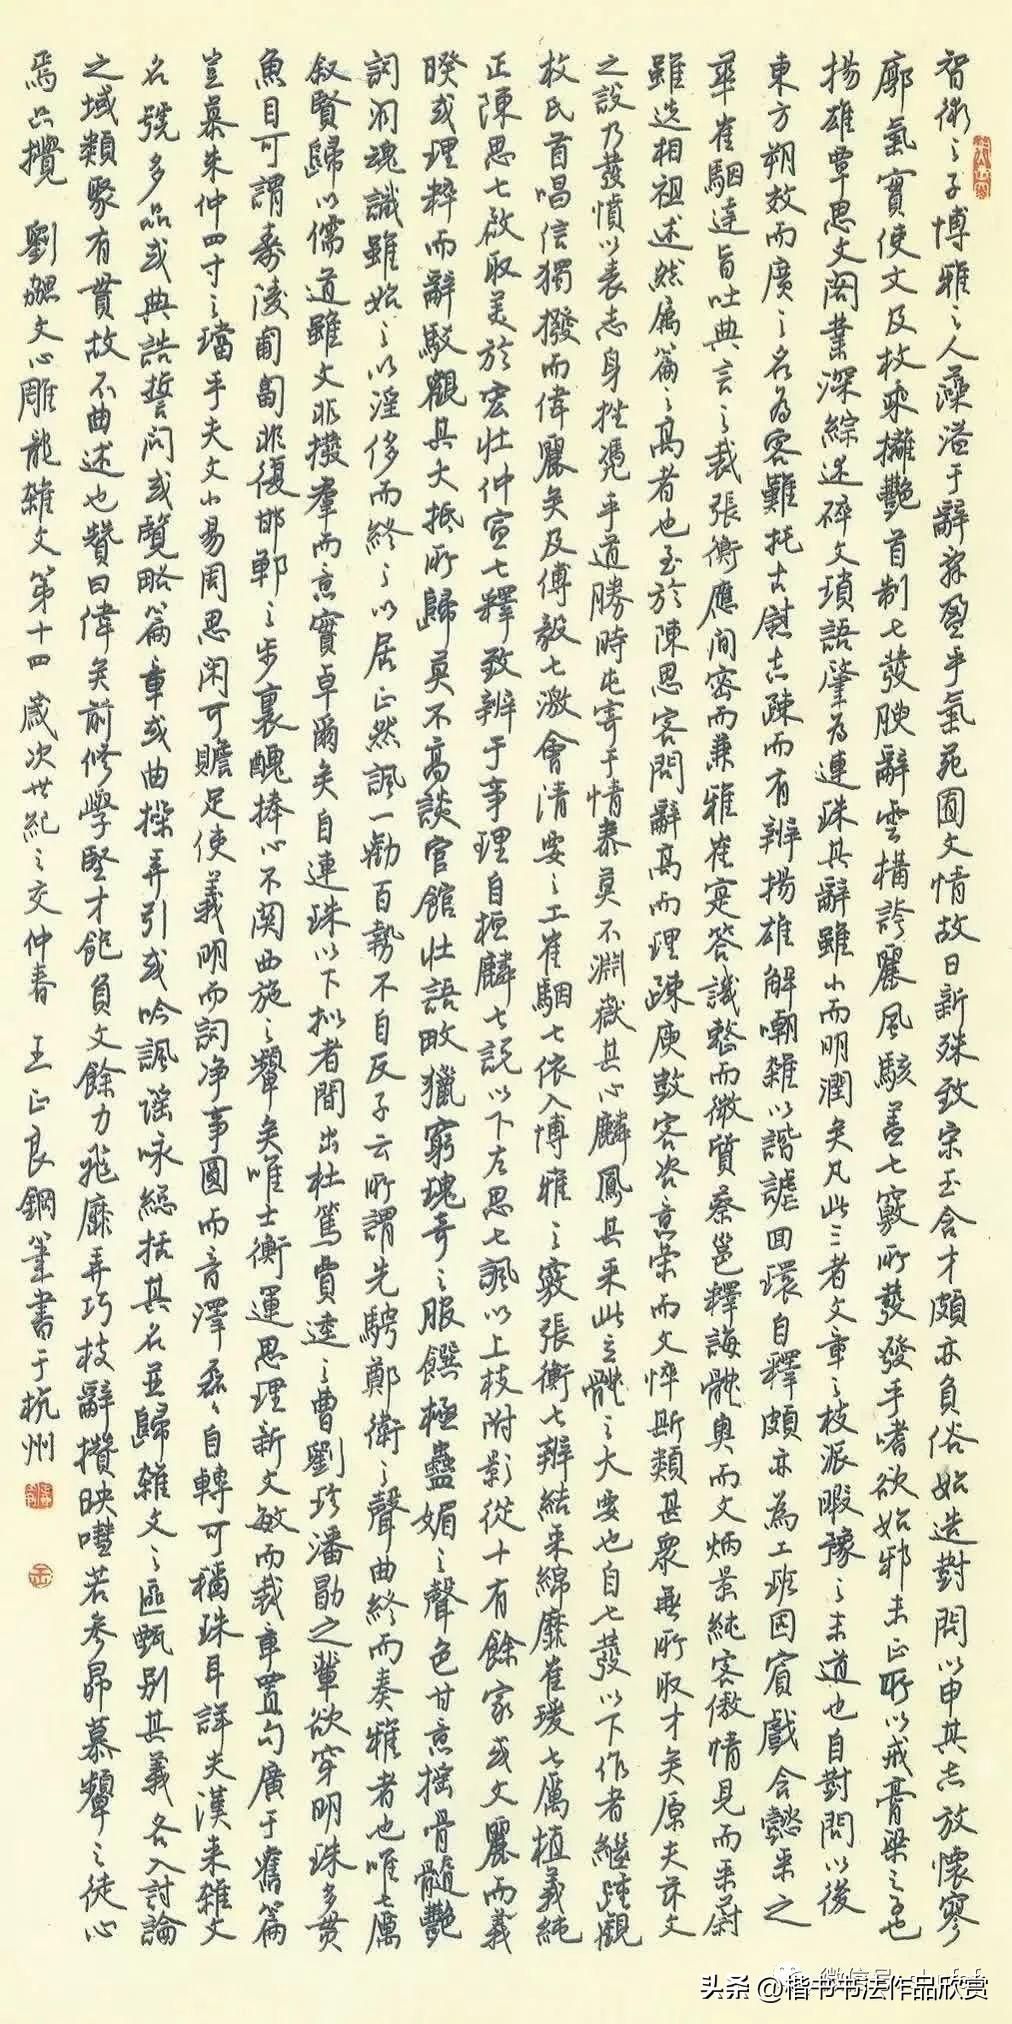 智術之子博雅之人藻溢于辭辭盈乎氣苑囿文情故日新殊致宋玉含才頗亦負俗始造對問以申其志放懷寥
廓氣實使文及枚乘攡艷首制七發腴辭雲構誇麗風駭蓋七竅所發發乎嗜欲始邪末正所以戒膏粱之子也
揚雄覃思文闊業深綜述碎文瑣語肇為連珠其辭雖小而明潤矣凡此三者文章之枝派暇豫之末造也自對問以後
東方朔效而廣之名為客難托古慰志疎而有辨揚雄解嘲雜以諧謔回環自釋頗亦為工班固賓戲含懿采之
華崔駰達旨吐典言之裁張衡應間密而兼雅崔寔答譏整而微質蔡邕釋誨體奧而文炳景純客傲情見而采蔚
雖迭相祖述然屬篇之高者也至於陳思客問辭高而理疎庾敳客咨意榮而文悴斯類甚眾無所取才矣原夫茲文
之設乃發憤以表志身挫憑乎道勝時屯寄于情泰莫不淵嶽其心麟鳳其采此立體之大要也自七發以下作者繼踵觀
枚氏首唱信獨撥而偉麗矣及傅毅七激會清要之工崔駰七依入博雅之竅張衡七辨結采綿靡崔瑗七厲植義純
正陳思七啟取美於宏壯仲宣七釋致辨于事理自桓麟七說以下左思七諷以上枝附影從十有餘家或文麗而義
暌或理粹而辭駁觀其大抵所歸莫不高談宮館壯語畋獵窮瑰奇之服饌極蠱媚之聲色甘意搖骨髓艷
詞洞魂識雖始之以淫侈而終之以居正然諷一勸百勢不自反子雲所謂先騁鄭衛之聲曲終而奏雅者也唯七厲
敘賢歸以儒道雖文非撥羣而意實卓爾矣自連珠以下拟者間出杜篤賈逵之曹劉珍潘勖之輩欲穿明珠多貫
魚目可謂壽陵匍匐非復邯鄲之步裏醜捧心不関西施之顰矣唯士衡運思理新文敏而裁章置句廣于舊篇
豈慕朱仲四寸之璫乎夫文小易周思閑可贍足使義明而詞净事圓而音澤磊磊自轉可稱珠耳詳夫漢来雜文
名號多品或典誥誓問或覽略篇章或曲操弄引或吟諷謠咏總括其名並歸雜文之區甄别其義各入討論
之域類聚有貫故不曲述也贊曰偉矣前修學堅才飽負文餘力飛靡弄巧枝辭攢映嘒若參昴慕顰之徒心
焉只攪 劉勰文心雕龍雜文第十四 歲次世紀之交仲春 王正良鋼筆書于杭州
头条 @楷书书法作品欣赏